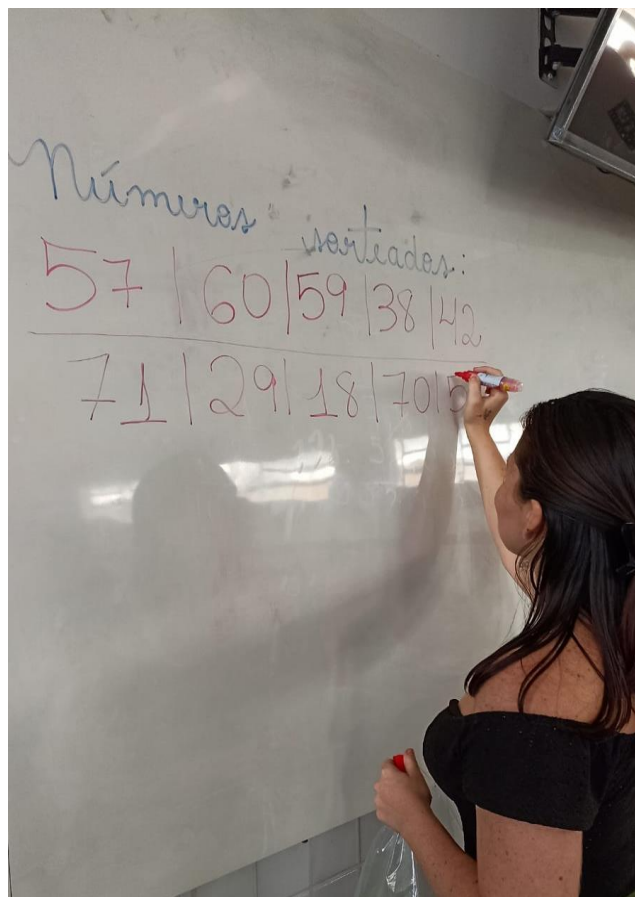 Números sorteados:
57 | 60 | 59 | 38 | 42
71 | 29 | 18 | 70 | 5